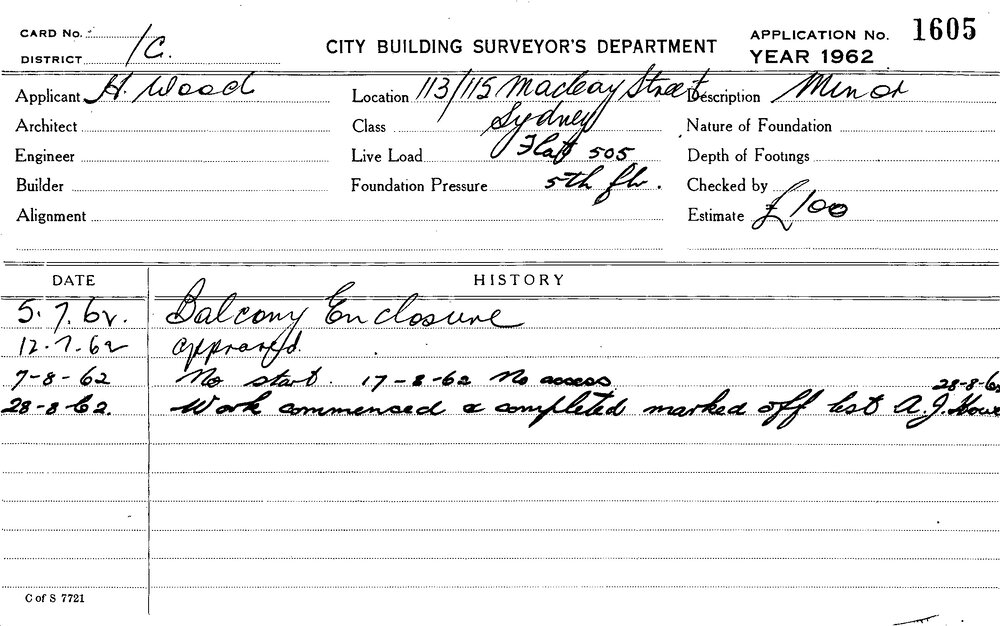 CARD No. APPLICATION No. 1605
DISTRICT 1C. CITY BUILDING SURVEYOR'S DEPARTMENT YEAR 1962
Applicant H. Wood Location 113/115 Macleay Street Description Minor
Architect Class Sydney Nature of Foundation
Engineer Live Load Flat 505 Depth of Footings
Builder Foundation Pressure 5th flr. Checked by
Alignment Estimate £100
DATE HISTORY
5.7.62. Balcony Enclosure
12.7.62 approved.
7-8-62 No start. 17-8-62 No access 28-8-62
28-8-62. Work commenced & completed marked off list A.J.
C of S 7721